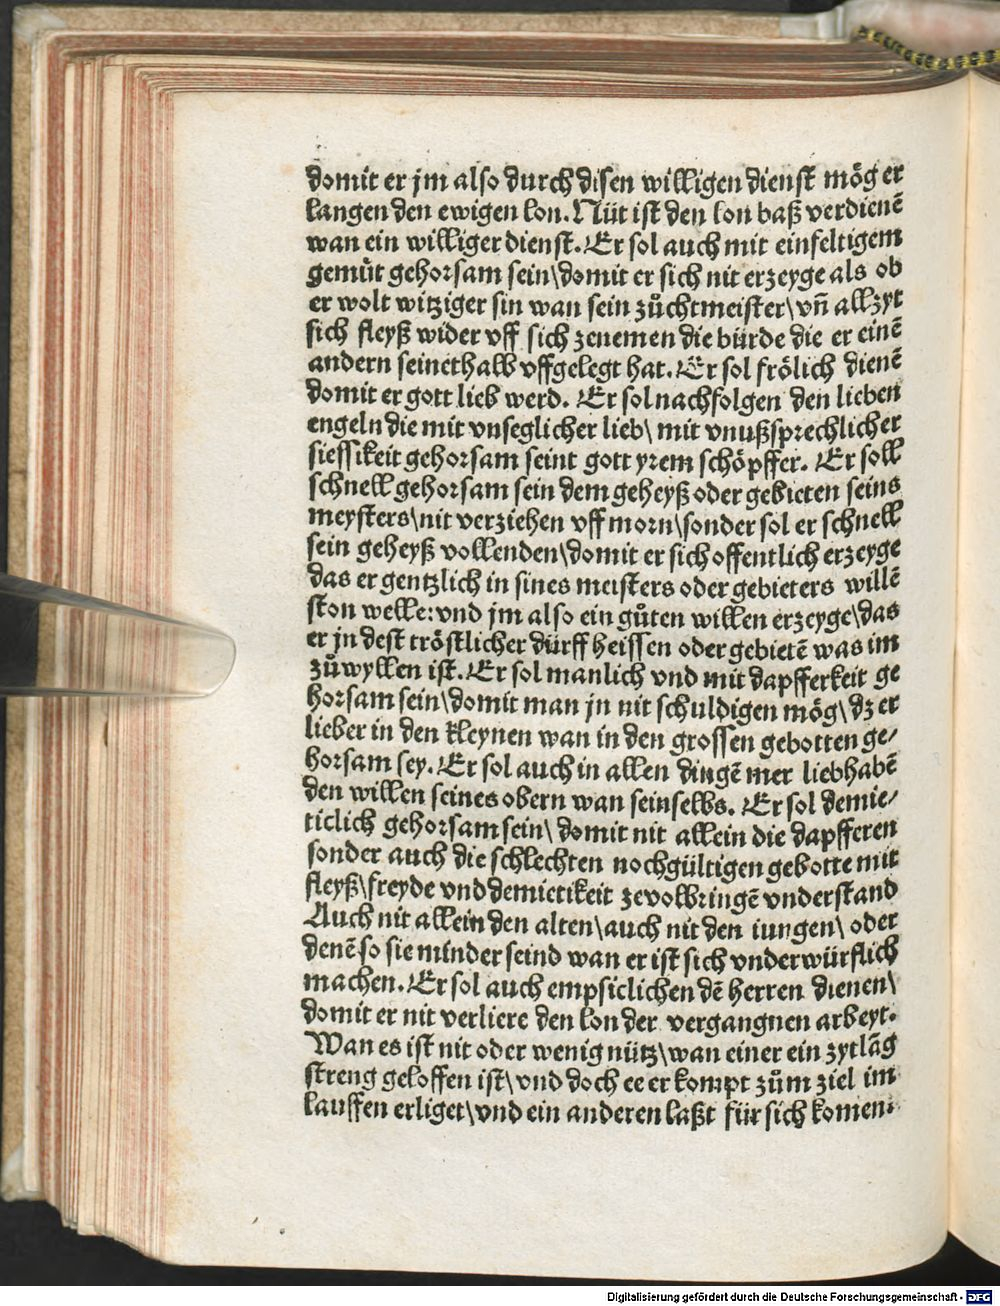 domit er jm also durch disen willigen dienst mög er
langen den ewigen lon. Nüt ist den lon baß verdienē
wan ein williger dienst. Er sol auch mit einfeltigem
gemüt gehorsam sein\domit er sich nit erzeyge als ob
er wolt witziger sin wan sein zůchtmeister\vn̄ allzyt
sich fleyß wider vff sich zenemen die bürde die er einē
andern seinethalb vffgelegt hat. Er sol frölich dienē
domit er gott lieb werd. Er sol nachfolgen den lieben
engeln die mit vnseglicher lieb\ mit vnußsprechlicher
siessikeit gehorsam seint gott yrem schöpffer. Er soll
schnell gehorsam sein dem geheyß oder gebieten seins
meysters\nit verziehen vff morn\sonder sol er schnell
sein geheyß vollenden\domit er sich offentlich erzeyge
das er gentzlich in sines meisters oder gebieters willē
ston welle: vnd jm also ein gůten willen erzeyge\das
er jn dest tröstlicher dürff heissen oder gebietē was im
zů wyllen ist. Er sol manlich vnd mit dapfferkeit ge
horsam sein\domit man jn nit schuldigen mög\dz er
lieber in den kleynen wan in den grossen gebotten ge/
horsam sey. Er sol auch in allen dingē mer liebhabē
den willen seines obern wan seinselbs. Er sol demie/
ticlich gehorsam sein\ domit nit allein die dapfferen
sonder auch die schlechten nochgültigen gebotte mit
fleyß\freyde vnd demietikeit zevolbringē vnderstand
Auch nit allein den alten\auch nit den iungen\ oder
denē so sie minder seind wan er ist sich vnderwürflich
machen. Er sol auch empsiclichen dē herren dienen\
domit er nit verliere den lon der vergangnen arbeyt.
Wan es ist nit oder wenig nütz\wan einer ein zytlāg
streng geloffen ist\vnd doch ee er kompt zům ziel im
lauffen erliget\vnd ein anderen laßt für sich komen.
Digitalisierung gefördert durch die Deutsche Forschungsgemeinschaft - DFG